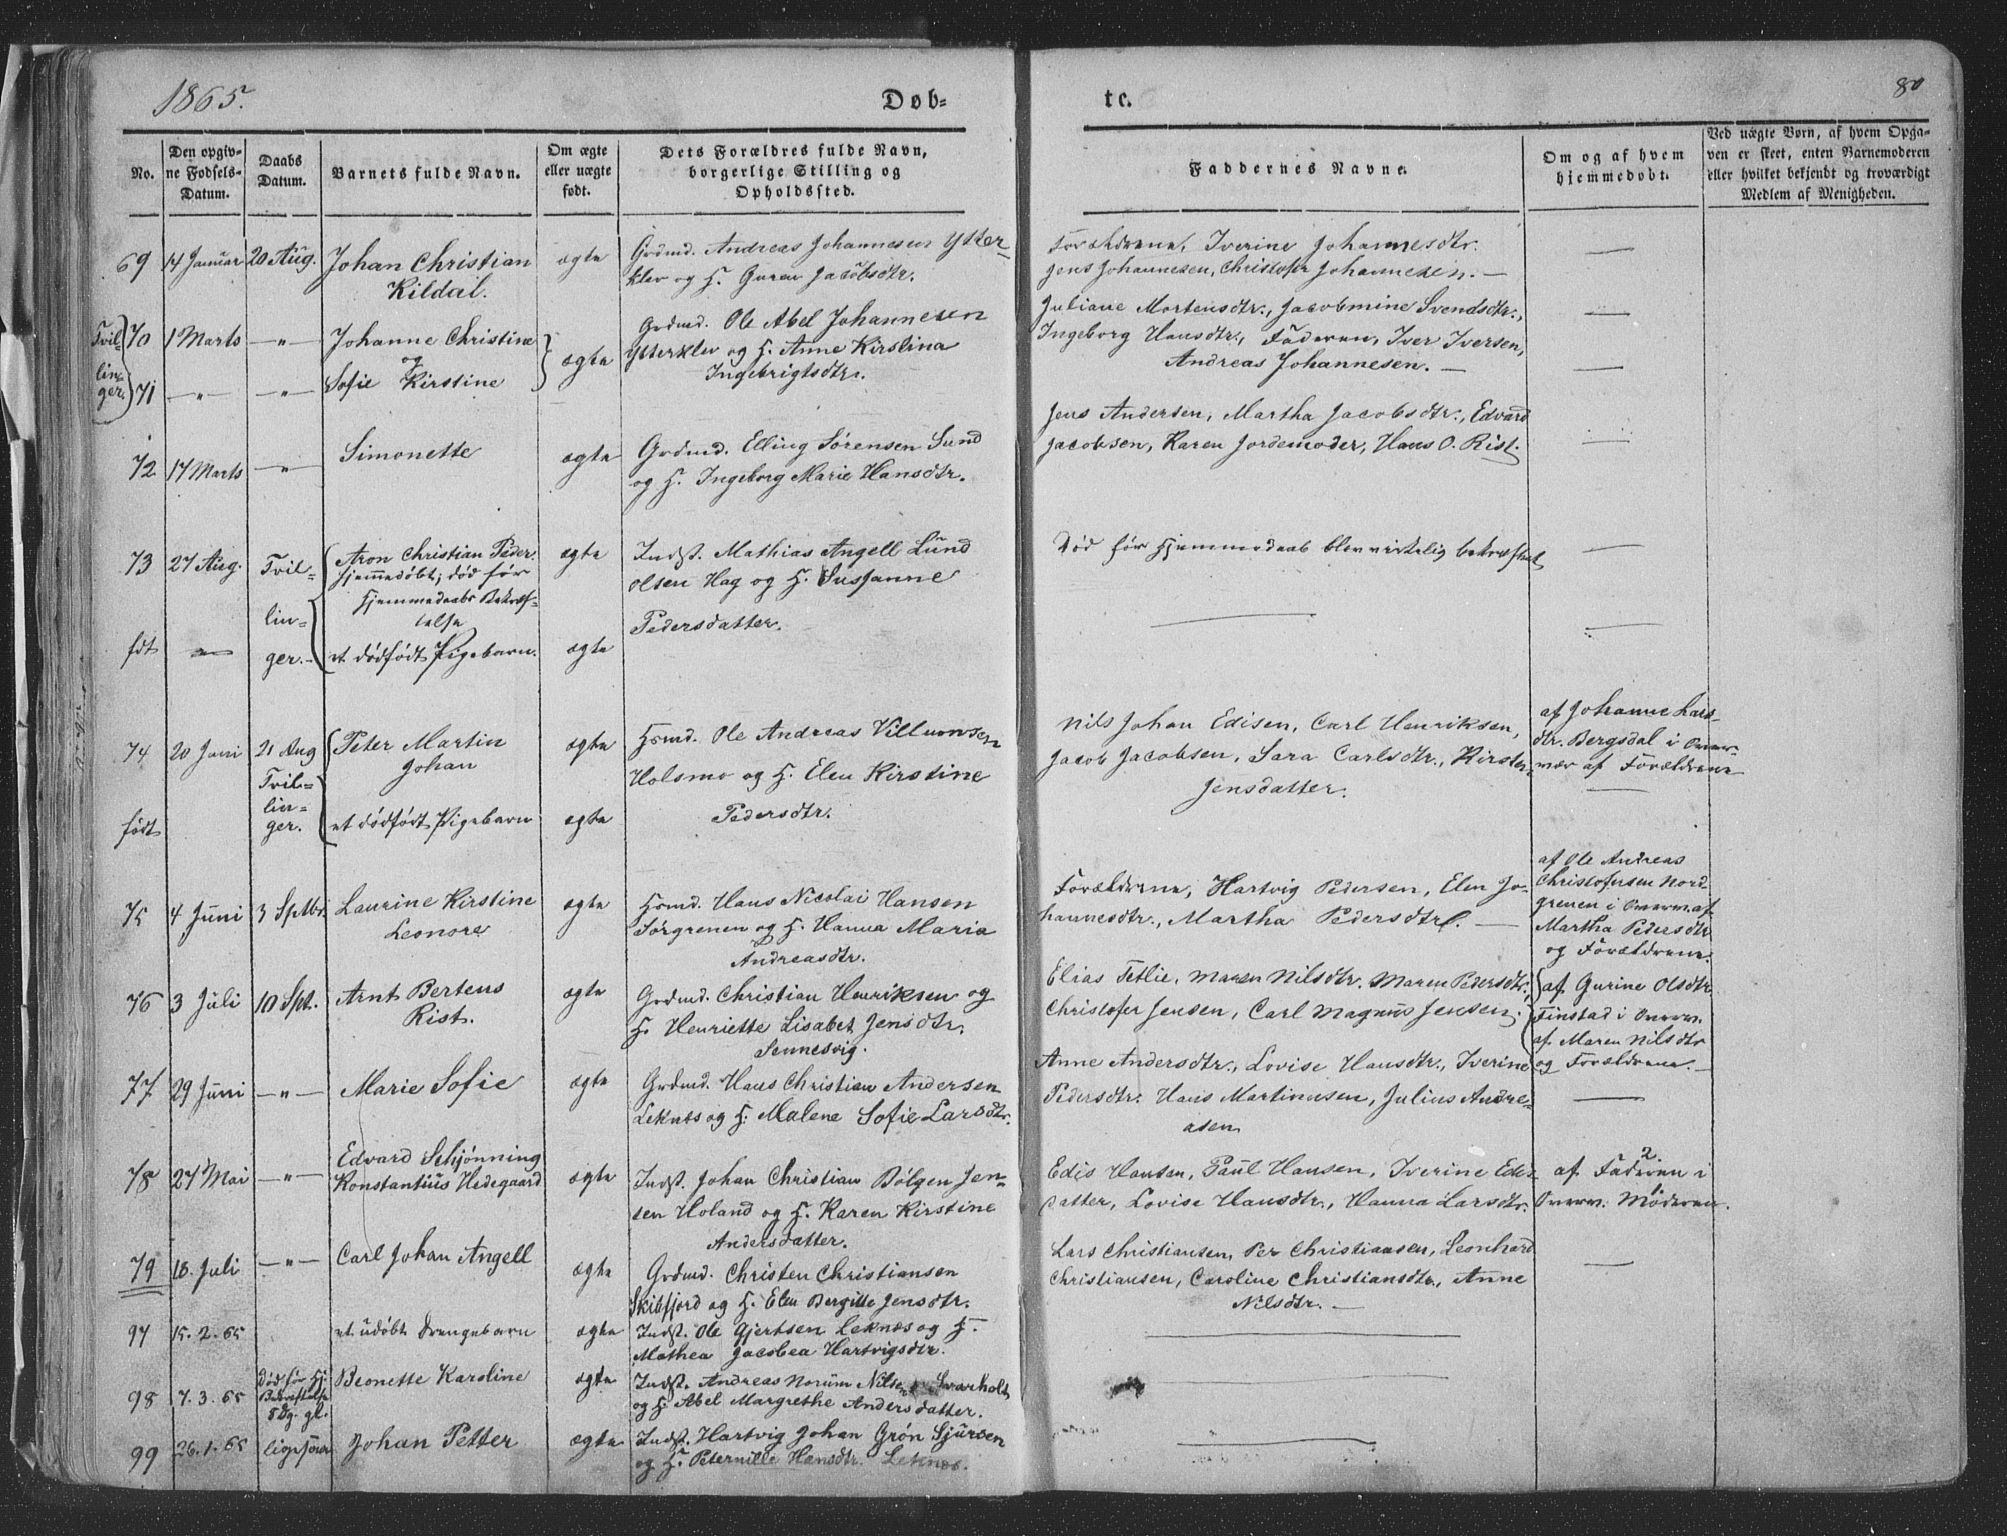 1865.
Døb-
te.
80
No.
Den opgiv-
ne Fødsels-
Datum.
Daabs
Datum.
Barnets fulde Navn.
Om ægte
eller uægte
født.
Dets Forældres fulde Navn,
borgerlige Stilling og
Opholdssted.
Faddernes Navne.
Om og af hvem
hjemmedøbt.
Ved uægte Børn, af hvem Opga-
ven er skeet, enten Barnemoderen
eller hvilket bekjendt og troværdigt
Medlem af Menigheden.
69 14 Januar 20 Aug. Johan Christian
Kildal.
ægte
Grdmd. Andreas Johannesen Ytter-
klev og H. Guren Jacobsdtr.
Forældrene, Iverine Johannesdtr.
Jens Johannesen, Christofer Johannesen. —
Tvil-
lin-
ger.
70 1 Marts —„— Johanne Christine
og
71 —„— —„— Sofie Kirstine
ægte
Grdmd. Ole Abel Johannesen
Ytterklev og H. Anne Kirstina
Ingebrigtsdtr.
Juliane Mortensdtr., Jacobmine Svendsdtr.,
Ingeborg Hansdtr., Faderen, Iver Iversen,
Andreas Johannesen. —
72 17 Marts —„— Simonette
ægte
Grdmd. Elling Sørensen Sund
og H. Ingeborg Marie Hansdtr.
Jens Andersen, Martha Jacobsdtr., Edvard
Jacobsen, Karen Jordemoder, Hans O. Rist.
73 27 Aug. Tvil-
lin-
ger. —
Aron Christian Peder
hjemmedøbt; død før
Hjemmedaabs Bekræf-
telse
ægte
Indst. Mathias Angell Lund
Olsen Hag og H. Susanne
Pedersdatter.
Død før Hjemmedaab blev virkelig bekræftet
fdt
et dødfødt Pigebarn.
ægte
74 20 Juni 21 Aug
Tvil-
lin-
ger.
Peter Martin
Johan
ægte
Hsmd. Ole Andreas Villumsen
Holsmo og H. Elen Kirstine
Pedersdtr.
Nils Johan Edisen, Carl Henriksen,
Jacob Jacobsen, Sara Carlsdtr., Kirsten
Jensdatter.
af Johanne Lars-
dtr. Bergsdal i Over-
vær af Forældrene
født
et dødfødt Pigebarn
ægte
75 4 Juni 3 Sptbr. Laurine Kirstine
Leonore
ægte
Hsmd. Hans Nicolai Hansen
Sørgrenen og H. Hanna Maria
Andreasdtr.
Forældrene, Hartvig Pedersen, Elen Jo-
hannesdtr., Martha Pedersdtr. —
af Ole Andreas
Christofersen Nord-
grenen i Overv. af
Martha Pedersdtr
og Forældrene.
76 3 Juli 10 Spt. Arnt Bertens
Rist.
ægte
Grdmd. Christian Henriksen og
H. Henriette Lisabet Jensdtr.
Sennesvig.
Elias Tetlie, Maren Nilsdtr. Maren Pedersdtr.,
Christofer Jensen, Carl Magnus Jensen.
af Gurine Olsdtr
Finstad i Overv.
af Maren Nilsdtr
og Forældrene. —
77 29 Juni —„— Marie Sofie
ægte
Grdmd. Hans Christian Andersen
Leknes og H. Malene Sofie Larsdtr.
Anne Andersdtr., Lovise Hansdtr., Iverine
Pedersdtr. Hans Martinusen, Julius Andre-
asen
78 27 Mai —„— Edvard Schjønning
Konstantius Hedegaard
ægte
Indst. Johan Christian Bølgen Jen-
sen Holand og H. Karen Kirstine
Andersdatter.
Edis Hansen, Paul Hansen, Iverine Edis-
datter, Lovise Hansdtr., Hanna Larsdtr.
af Faderen i
Overv. Moderen.
79 18. Juli —„— Carl Johan Angell
ægte
Grdmd. Christen Christiansen
Skibfjord og H. Elen Bergitte Jensdtr.
Lars Christiansen, Per Christiansen, Leonhard
Christiansen, Caroline Christiansdtr., Anne
Nilsdtr. —
97 15. 2. 65 et udøbt Drengebarn
ægte
Indst. Ole Gjertsen Leknes og H.
Mathea Jacobea Hartvigsdtr.
98 7. 3. 65 Død før Hj.
Bekræftelse
5 Dg. gl.
Beonette Karoline
ægte
Indst. Andreas Norum Nilsen Svarholt
og H. Abel Margrethe Andersdatter.
99 26. 1. 65
Johan Petter
ægte
Indst. Hartvig Johan Grøn Sjursen
og H. Peternille Hansdtr. Leknes.